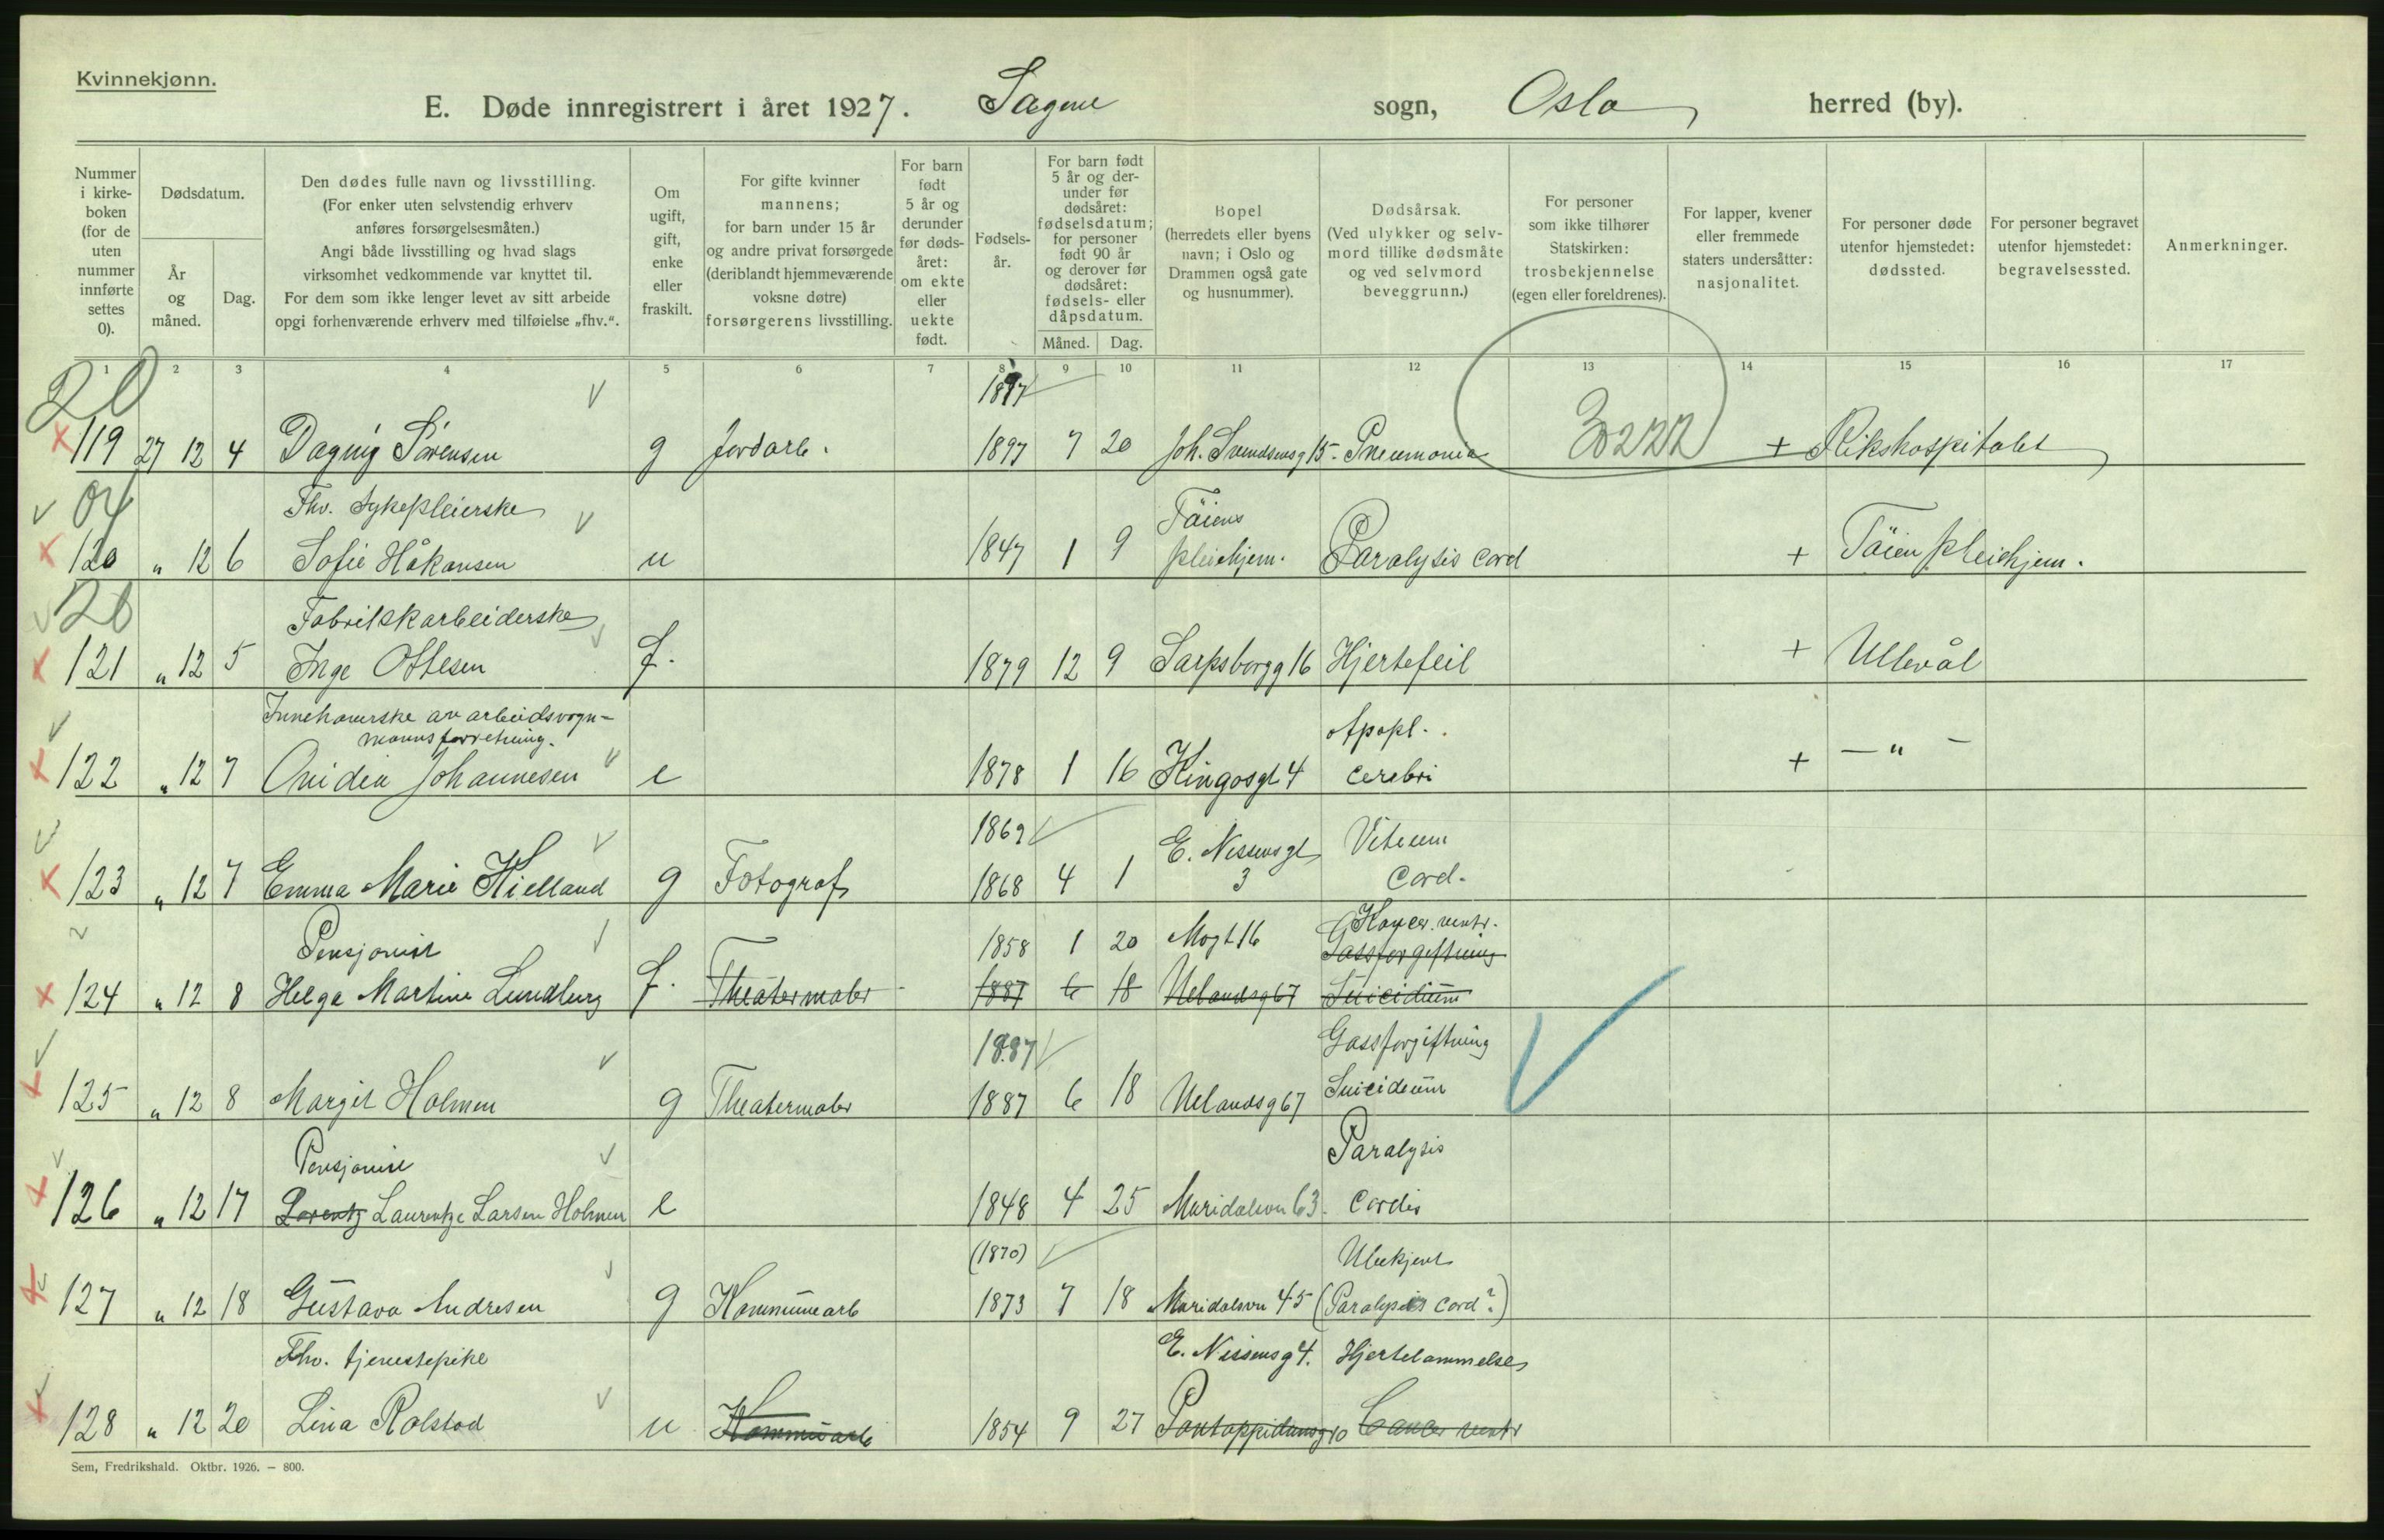 Kvinnekjønn.
E. Døde innregistrert i året 1927. Sagene sogn, Oslo herred (by).
Nummer i kirke-boken (for de uten nummer innførte settes 0).
Dødsdatum.
År og måned.
Dag.
Den dødes fulle navn og livsstilling.
(For enker uten selvstendig erhverv
anføres forsørgelsesmåten.)
Angi både livsstilling og hvad slags
virksomhet vedkommende var knyttet til.
For dem som ikke lenger levet av sitt arbeide
opgi forhenværende erhverv med tilføielse „fhv.“.
Om ugift, gift, enke eller fraskilt.
For gifte kvinner
mannens;
for barn under 15 år
og andre privat forsørgede
(deriblandt hjemmeværende
voksne døtre)
forsørgerens livsstilling.
For barn født 5 år og derunder før døds-året: om ekte eller uekte født.
Fødsels-år.
For barn født 5 år og der-under før dødsåret: fødselsdatum; for personer født 90 år og derover før dødsåret: fødsels- eller dåpsdatum.
Måned. Dag.
Bopel
(herredets eller byens
navn; i Oslo og
Drammen også gate
og husnummer).
Dødsårsak.
(Ved ulykker og selv-
mord tillike dødsmåte
og ved selvmord
beveggrunn.)
For personer
som ikke tilhører
Statskirken:
trosbekjennelse
(egen eller foreldrenes).
For lapper, kvener
eller fremmede
staters undersåtter:
nasjonalitet.
For personer døde
utenfor hjemstedet:
dødssted.
For personer begravet
utenfor hjemstedet:
begravelsessted.
Anmerkninger.
1 2 3 4 5 6 7 8 9 10 11 12 13 14 15 16 17
20 1897
119 27 12 4 Dagny Sørensen g Jordarb. 1897 7 20 Joh. Svendsensg 15 Pneumonia + Rikshospitalet
04 Fhv. Sykepleierske Töiens
120 " 12 6 Sofie Håkansen u 1847 1 9 pleiehjem. Paralysis cord + Töien pleiehjem.
20 Fabrikkarbeiderske
121 " 12 5 Inga Ottesen f. 1879 12 9 Sarpsborgg 16 Hjertefeil + Ullevål
Innehaverske av arbeidsvogn-
mannsforretning. Apopl.
122 " 12 7 Ovidia Johannesen e 1878 1 16 Kingosgt 4 cerebri + — " —
1869 E. Nissensgt Vitium
123 " 12 7 Emma Marie Kielland g Fotograf 1868 4 1 3 Cord.
Pensjonist 1858 1 20 Mogt 16 Kancer. ventr. Gassforgiftning
124 " 12 8 Helga Martine Lundberg f. Theatermaler 1887 6 18 Uelandsg 67 Suicidium
1887 Gassforgiftning
125 " 12 8 Margit Holmen g Theatermaler 1887 6 18 Uelandsg 67 Suicidium
Pensjonist Paralysis
126 " 12 17 Lorentz Laurentze Larsen Holmen e 1848 4 25 Maridalsvn 63 Cordis
(1870) Ubekjent
127 " 12 18 Gustava Andresen g Kommunearb 1873 7 18 Maridalsvn 45 (Paralysis cord?)
Fhv. tjenestepike E. Nissensg 4. Hjertelammelse
128 " 12 20 Lina Rolstad u Kommunearb 1854 9 27 Pontoppidansg 10 Cancer ventr
Sem, Fredrikshald. Oktbr. 1926. — 800.